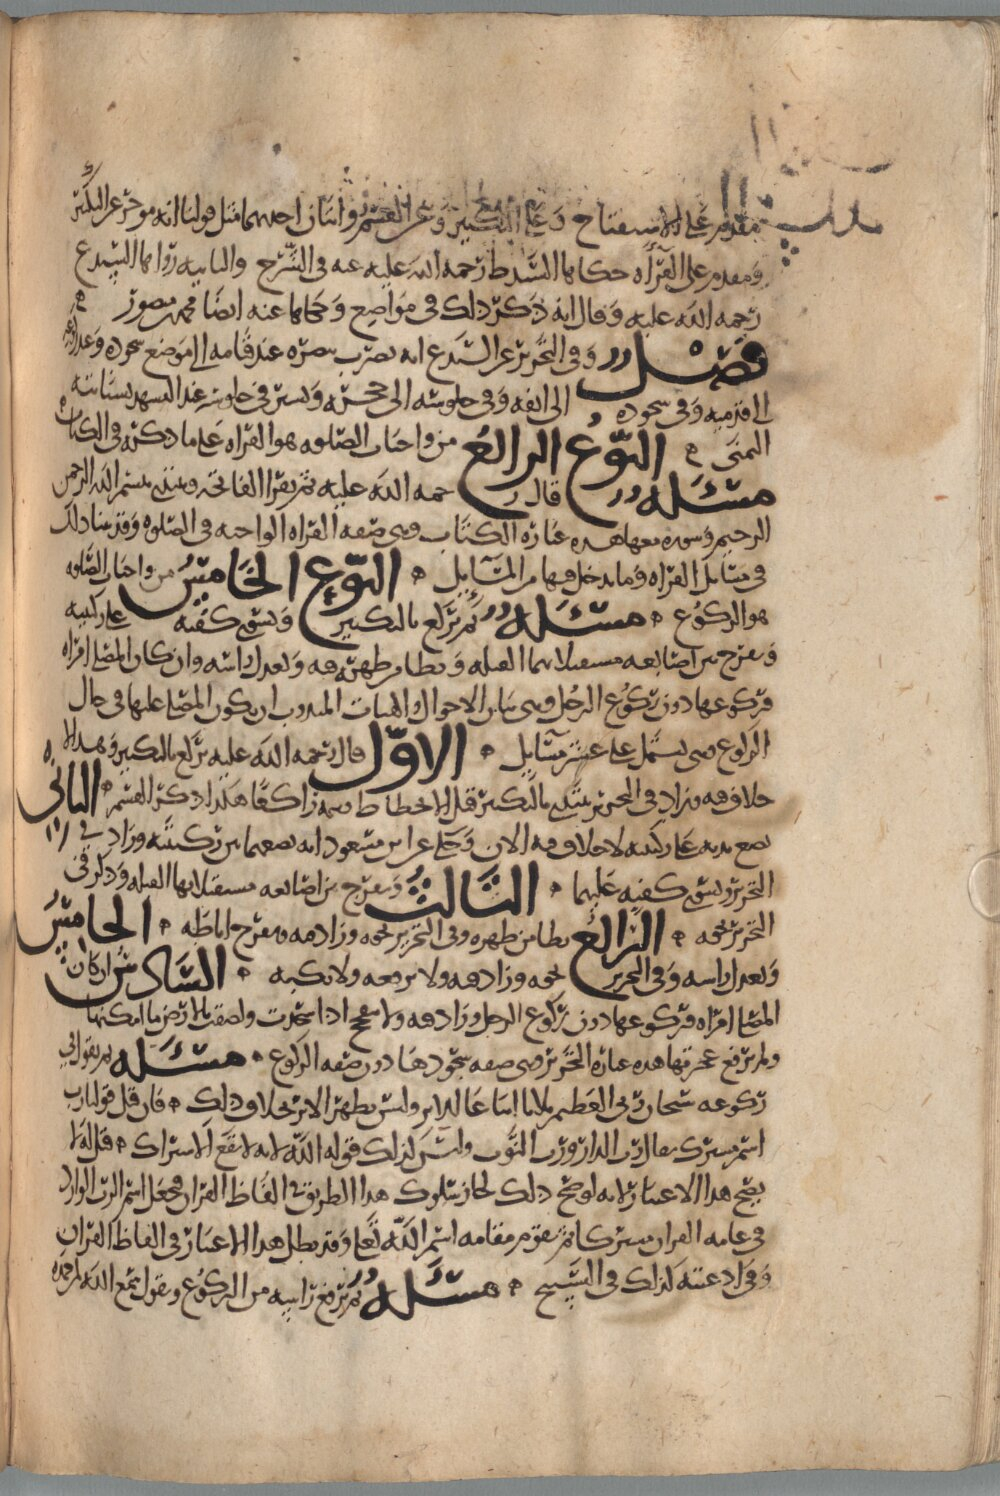 مقدم على الاستفتاح وعلى التكبير وعن القسم روايتان احدهما مثل قولنا انه موخر عن التكبير
ومقدم على القرآه حكاها السيد ط رحمه الله عليه عنه في الشرح والثانيه رواها السيد ع
رحمه الله عليه وقال انه ذكر ذلك في مواضع وحكاها عنه ايضا محمد بن منصور
فصل وفي التحرير عن السيد ع انه يضرب ببصره عند قيامه الى موضع سجوده وعند ركوعه
الى قدميه وفي سجوده الى انفه وفي جلوسه الى حجره ويسير في جلوسه عند التشهد بسبابته
اليمنى النوع الرابع من واجبات الصلوه هو القراه على ما ذكره في الكتاب
مسئله قال رحمه الله عليه ثم يقرا الفاتحه ويبتدي ببسم الله الرحمن
الرحيم وسوره معها هذه عباره الكتاب وهي صفه القراه الواجبه في الصلوه وقد بينا ذلك
في مسايل القراه وما يدخل فيها من المسايل النوع الخامس من واجبات الصلوه
هو الركوع مسئله ثم يركع بالتكبير ويسوي كفيه على ركبتيه
ويفرج بين اصابعه مستقبلا بهما القبله ويطامن ظهره فيه ويعدل راسه وان كان المصلي امراه
فركوعها دون ركوع الرجل وهي سائر الاحوال والهيات المندوب ان يكون المصلي عليها في حال
الركوع وهي تشتمل على عشر مسايل الاول قال رحمه الله عليه يركع بالتكبير وهذا لا
خلاف فيه وزاد في التحرير يبتدي بالتكبير قبل الانحطاط ويتمه راكعا هكذا ذكر القسم الثاني
يضع يديه على ركبتيه لا خلاف فيه الان وحكي عن ابن مسعود انه يضعهما بين ركبتيه وزاد في
التحرير ويسوي كفيه عليهما الثالث ويفرج بين اصابعه مستقبلا بها القبله وذكر في
التحرير نحوه الرابع يطامن ظهره وفي التحرير نحوه وزاد فيه ويفرج اباطه الخامس
ويعدل راسه وفي التحرير نحوه وزاد فيه ولا يرفعه ولا يكبه السادس ان كان
المصلي امراه فركوعها دون ركوع الرجل وزاد فيه ولا تنفتح اذا سجدت ولصقت بالارض ما امكنها
ولم ترفع عجزتها هذه عباره التحرير وهي صفه سجودها دون صفه الركوع مسئله ثم يقول في
ركوعه سبحان ربي العظيم ثلاثا فان قيل قولنا رب
اسم مشترك يقال رب الدار ورب الثوب وليس كذلك قوله الله لانه لا يقع الاشتراك قيل له لا
يصح هذا الاعتبار لانه لو صح ذلك لجاز سلوك هذا الطريق في الفاظ القران فيجعل اسم الرب الوارد
في عامه القران مشتركا ثم يقوم مقامه اسم الله تعالى وقد بطل هذا الاعتبار في الفاظ القران
وفي ادعيته كذلك في التسبيح مسئله ثم يرفع راسه من الركوع ويقول سمع الله لمن حمده